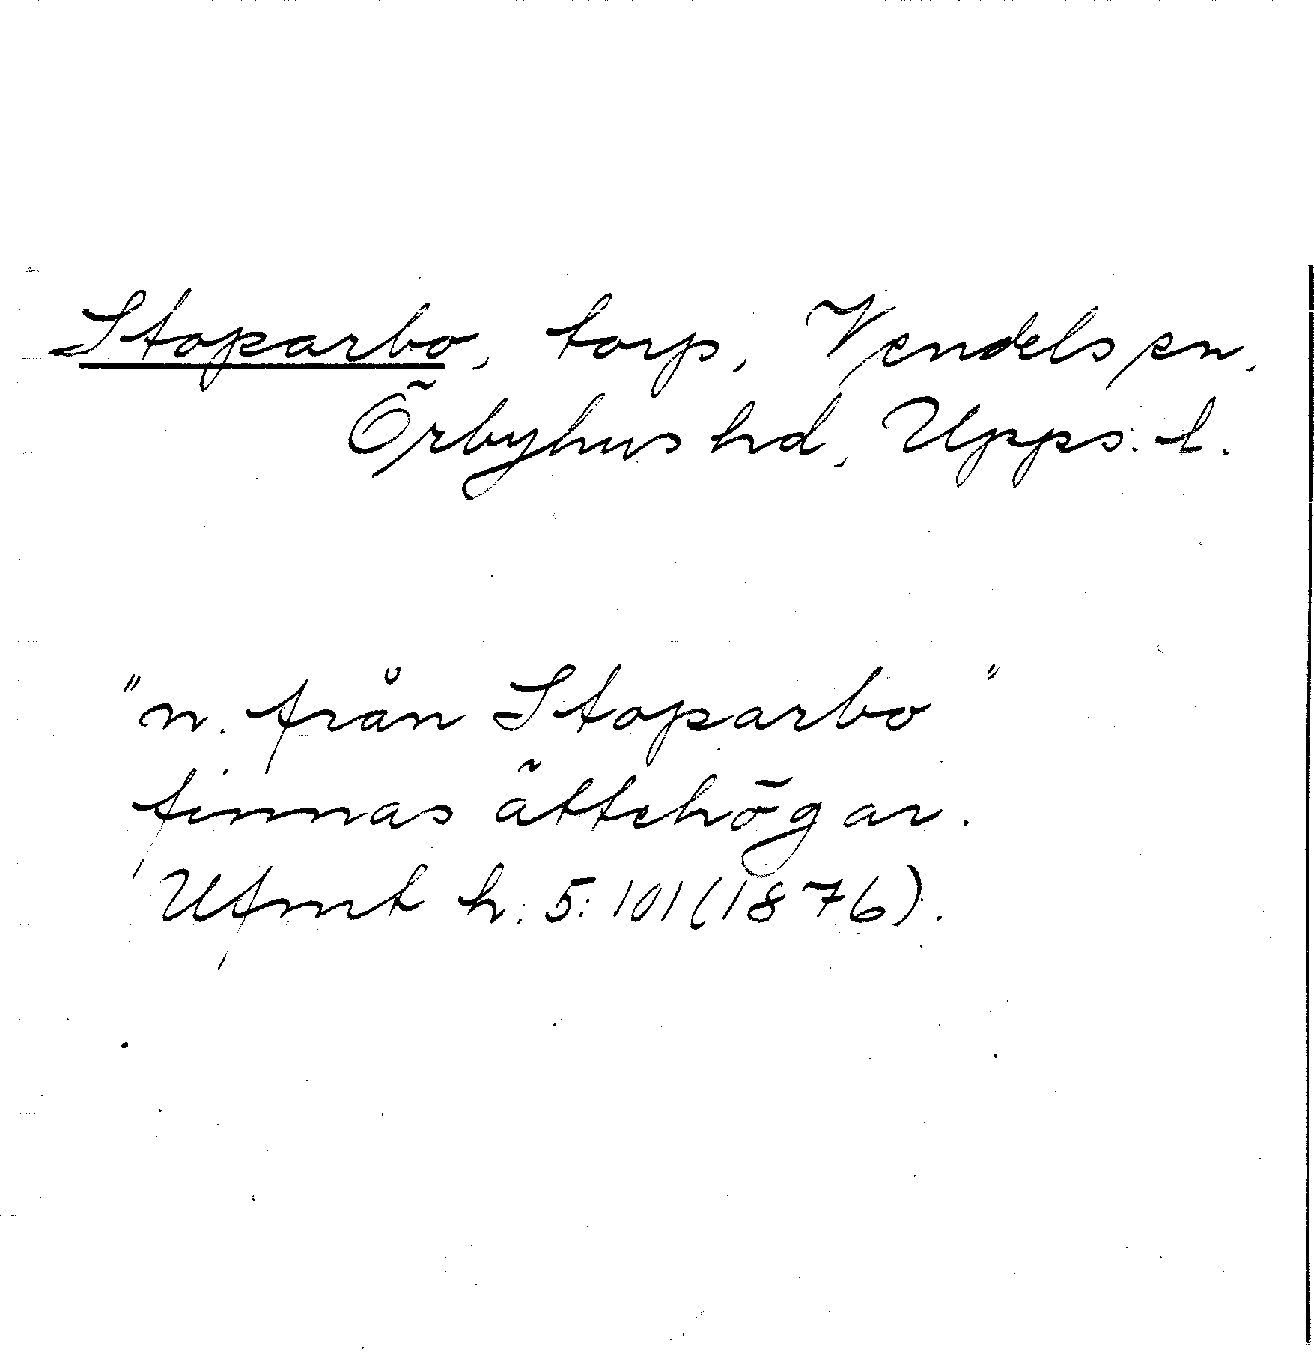 Stoparbo, torp, Vendels sn,
Örbyhus hd, Upps. l.
"n. från Stoparbo"
finnas ättehögar.
Ufmt h. 5: 101 (1876).